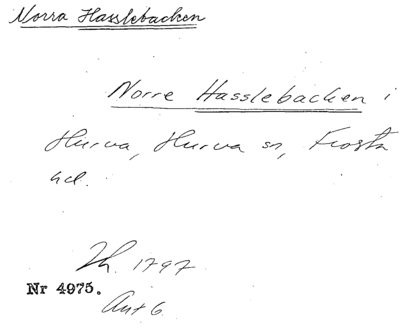 Norra Hasslebacken
Norre Hasslebacken i
Hurva, Hurva sn, Frosta
hd.
Lh. 1797
Nr 4975.
Ant 6